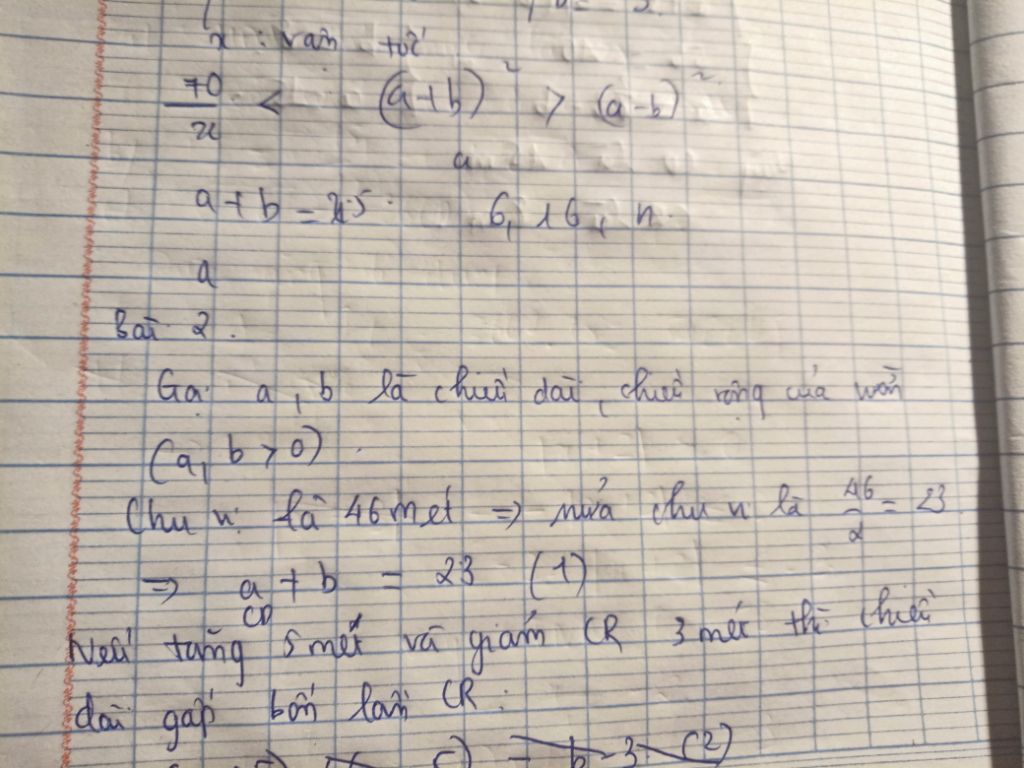 x : vận tốc
70/x < (a+b)² > (a-b)²
a
a + b = 25 6, 16, n
a
Bài 2.
Gọi a, b là chiều dài, chiều rộng của vườn
(a, b > 0).
Chu vi là 46 mét => nửa chu vi là 46/2 = 23
=> a + b = 23 (1)
Nếu tăng CD 5 mét và giảm CR 3 mét thì chiều
dài gấp bốn lần CR.
b - 3 (2)